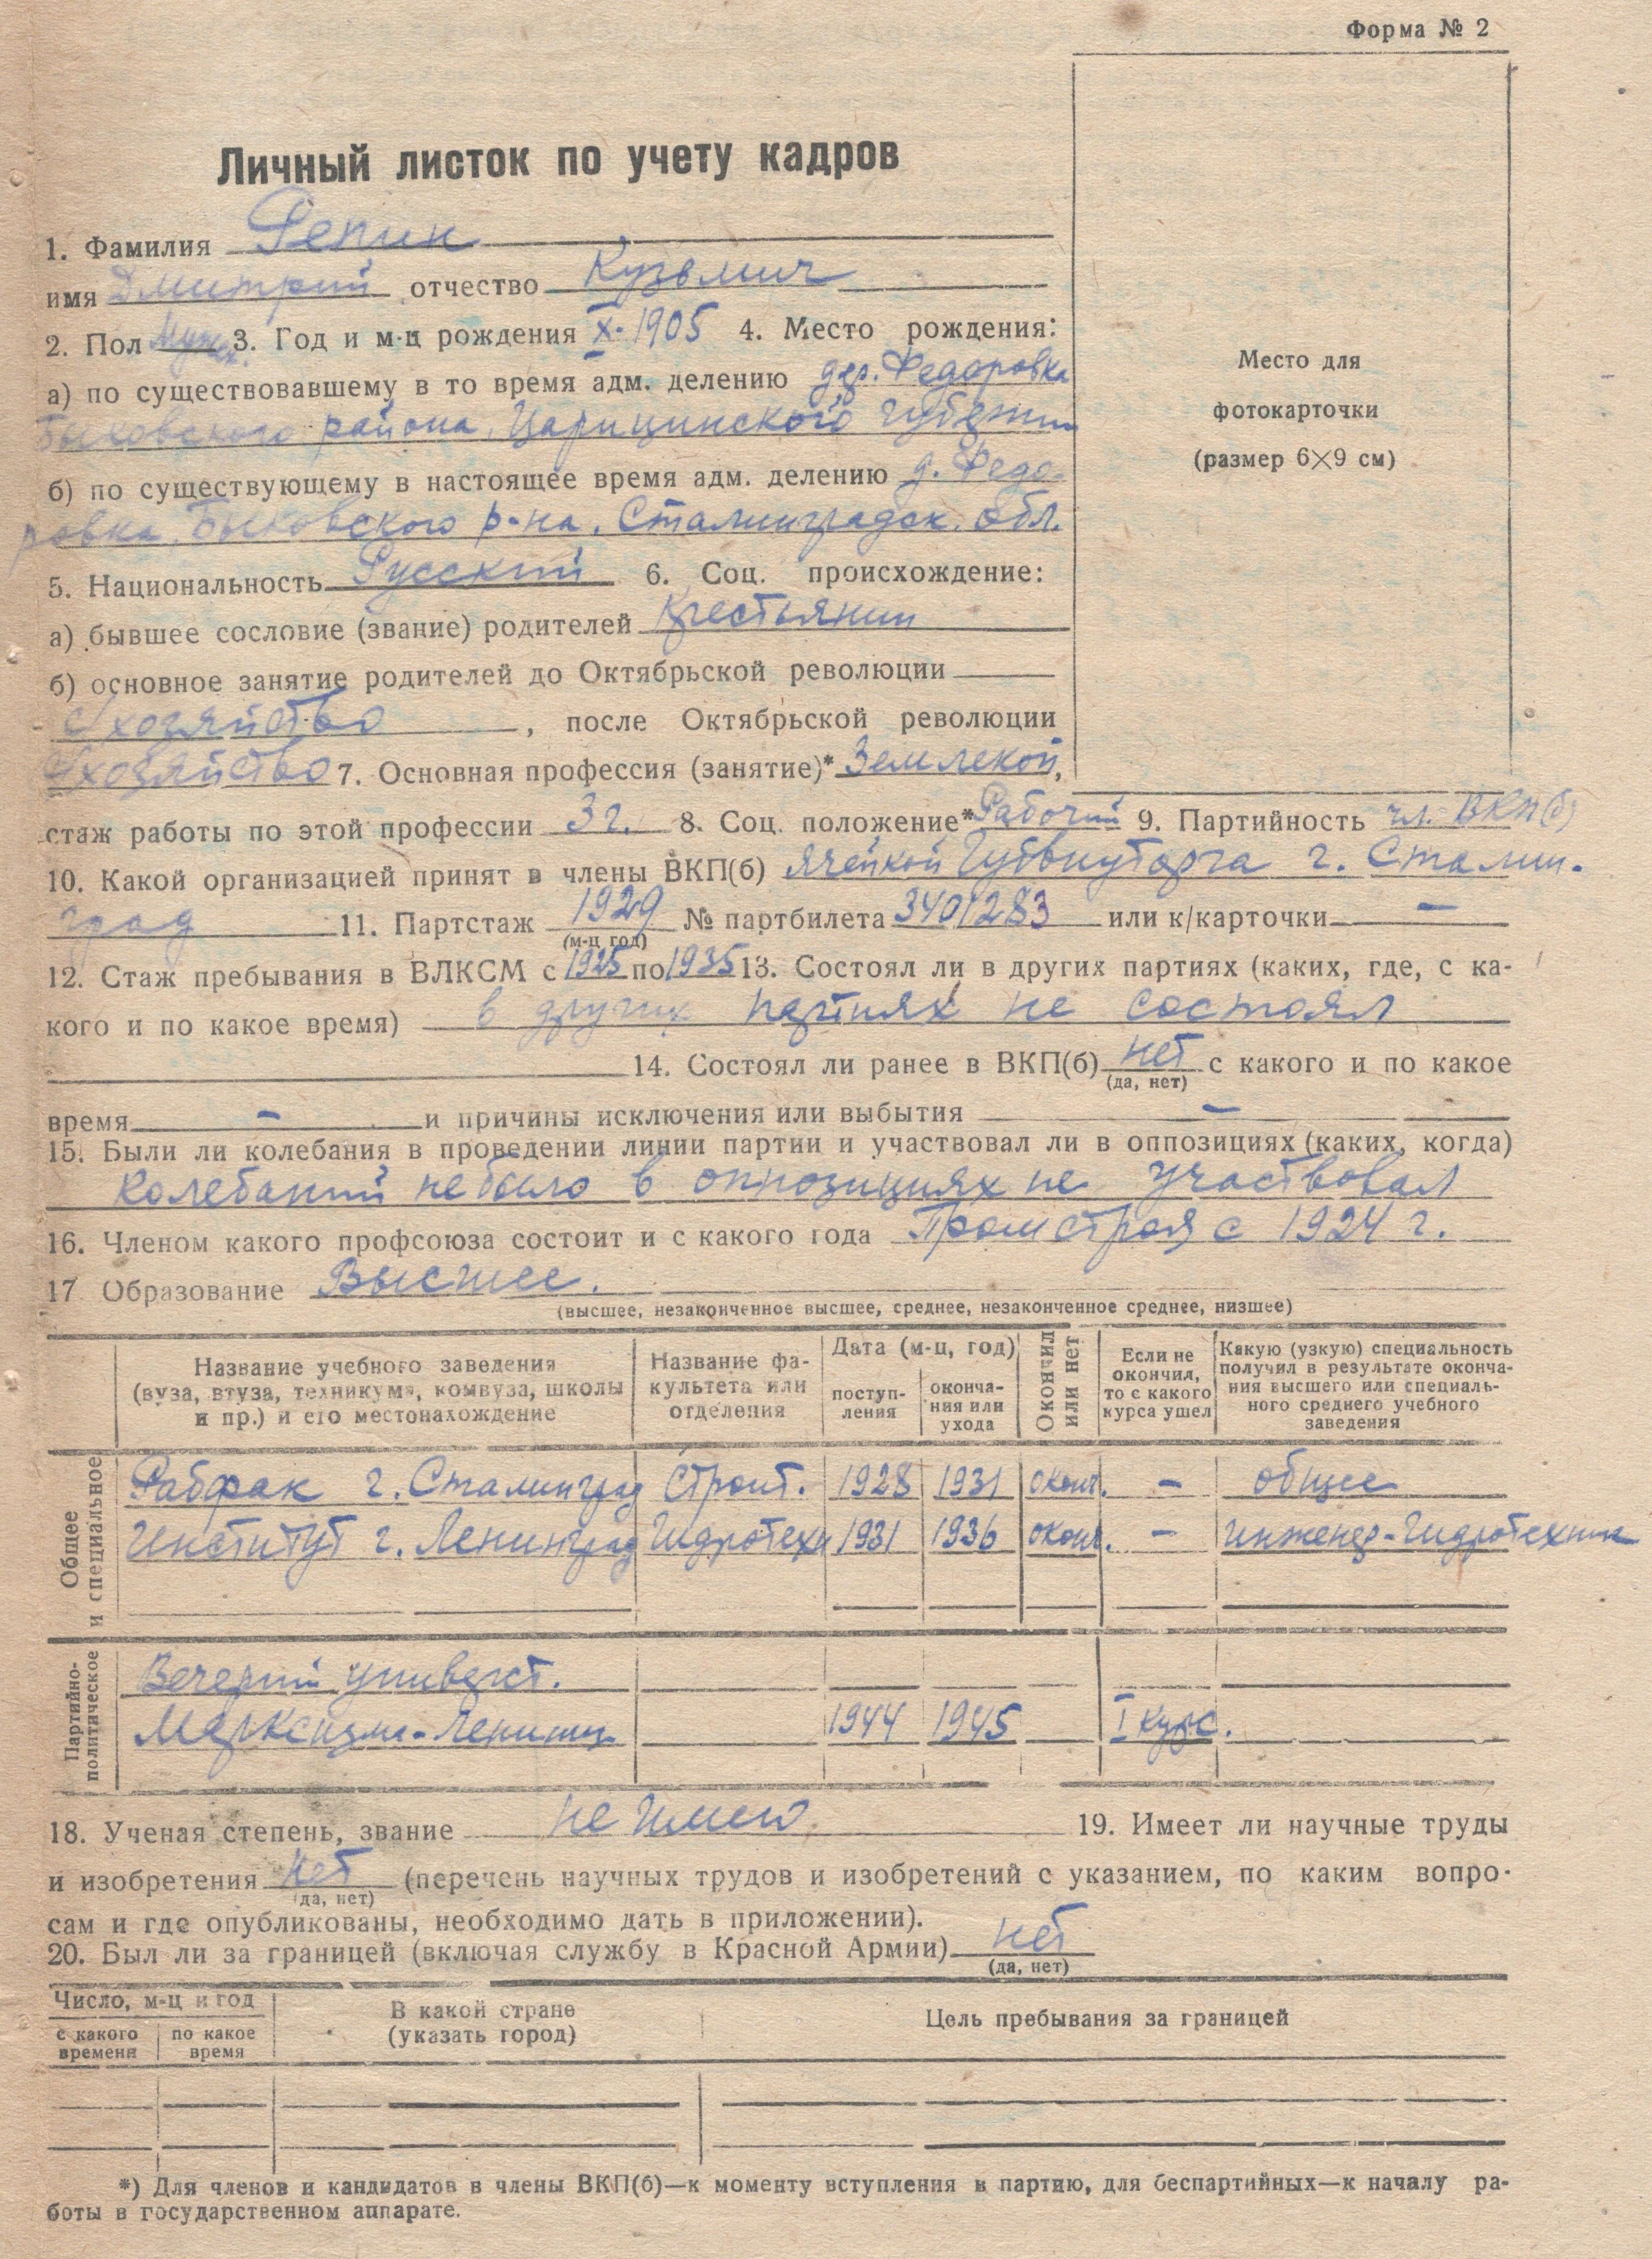 Форма № 2
Личный листок по учету кадров
1. Фамилия Репин
имя Дмитрий отчество Кузьмич
2. Пол Муж. 3. Год и м-ц рождения X-1905 4. Место рождения:
а) по существовавшему в то время адм. делению дер. Федоровка
Быковского района, Царицинского губернии
б) по существующему в настоящее время адм. делению д. Федо-
ровка, Быковского р-на, Сталинградск. обл.
5. Национальность Русский 6. Соц. происхождение:
а) бывшее сословие (звание) родителей Крестьянин
б) основное занятие родителей до Октябрьской революции
С/хозяйство, после Октябрьской революции
С/хозяйство 7. Основная профессия (занятие)* Землекоп,
стаж работы по этой профессии 3 г. 8. Соц. положение* Рабочий 9. Партийность чл. ВКП(б)
10. Какой организацией принят в члены ВКП(б) ячейкой Губвнуторга г. Сталин-
град 11. Партстаж 1929 № партбилета 3401283 или к/карточки —
(м-ц год)
12. Стаж пребывания в ВЛКСМ с 1925 по 1935 13. Состоял ли в других партиях (каких, где, с ка-
кого и по какое время) в других партиях не состоял
14. Состоял ли ранее в ВКП(б) нет с какого и по какое
(да, нет)
время — и причины исключения или выбытия —
15. Были ли колебания в проведении линии партии и участвовал ли в оппозициях (каких, когда)
Колебаний не было в оппозициях не участвовал
16. Членом какого профсоюза состоит и с какого года Промстроя с 1924 г.
17 Образование Высшее.
(высшее, незаконченное высшее, среднее, незаконченное среднее, низшее)
Название учебного заведения
(вуза, втуза, техникума, комвуза, школы
и пр.) и его местонахождение
Название фа-
культета или
отделения
Дата (м-ц, год)
поступ-
ления
оконча-
ния или
ухода
Окончил
или нет
Если не
окончил,
то с какого
курса ушел
Какую (узкую) специальность
получил в результате оконча-
ния высшего или специаль-
ного среднего учебного
заведения
Общее
и специальное
Рабфак г. Сталинград Строит. 1928 1931 оконч. — общее
Институт г. Ленинград Гидротехн 1931 1936 оконч. — инженер-Гидротехник
Партийно-
политическое
Вечерний универст.
Марксизма-Ленинизм 1944 1945 I курс.
18. Ученая степень, звание не имею 19. Имеет ли научные труды
и изобретения нет (перечень научных трудов и изобретений с указанием, по каким вопро-
(да, нет)
сам и где опубликованы, необходимо дать в приложении).
20. Был ли за границей (включая службу в Красной Армии) нет
(да, нет)
Число, м-ц и год
с какого
времени
по какое
время
В какой стране
(указать город)
Цель пребывания за границей
*) Для членов и кандидатов в члены ВКП(б)—к моменту вступления в партию, для беспартийных—к началу ра-
боты в государственном аппарате.
Место для
фотокарточки
(размер 6×9 см)